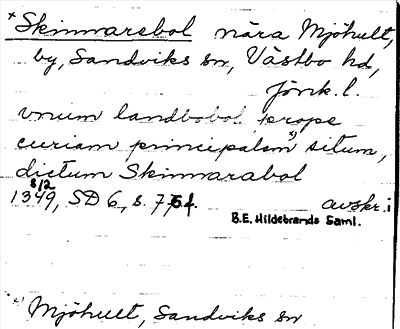 *Skinnarabol nära Mjöhult,
by, Sandviks sn, Västbo hd,
Jönk. l.
vnum landbobol prope
curiam principalem *) situm,
dictum Skinnarabol
8/2
1349, SD 6, s. 77 f. avskr. i
B.E. Hildebrands Saml.
*) Mjöhult, Sandviks sn